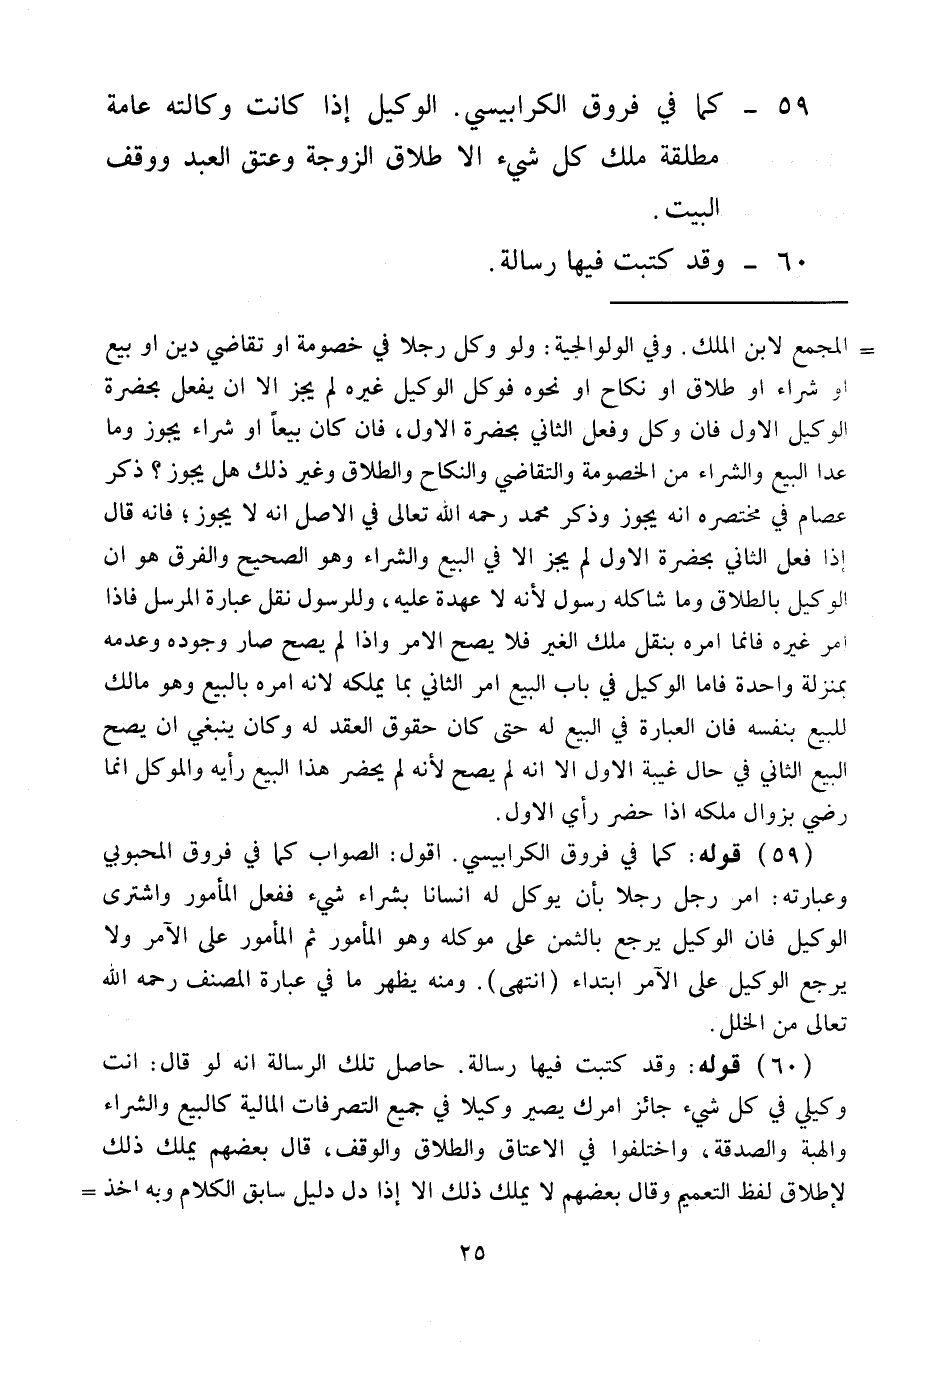 ٥٩ - كما في فروق الكرابيسي. الوكيل إذا كانت وكالته عامة
مطلقة ملك كل شيء الا طلاق الزوجة وعتق العبد ووقف
البيت.
٦٠ - وقد كتبت فيها رسالة.
= المجمع لابن الملك. وفي الولوالجية: ولو وكل رجلا في خصومة او تقاضي دين او بيع
او شراء او طلاق او نكاح او نحوه فوكل الوكيل غيره لم يجز الا ان يفعل بحضرة
الوكيل الاول فان وكل وفعل الثاني بحضرة الاول، فان كان بيعاً او شراء يجوز وما
عدا البيع والشراء من الخصومة والتقاضي والنكاح والطلاق وغير ذلك هل يجوز؟ ذكر
عصام في مختصره انه يجوز وذكر محمد رحمه الله تعالى في الاصل انه لا يجوز؛ فانه قال
إذا فعل الثاني بحضرة الاول لم يجز الا في البيع والشراء وهو الصحيح والفرق هو ان
الوكيل بالطلاق وما شاكله رسول لأنه لا عهدة عليه، وللرسول نقل عبارة المرسل فاذا
امر غيره فانما امره بنقل ملك الغير فلا يصح الامر واذا لم يصح صار وجوده وعدمه
بمنزلة واحدة فاما الوكيل في باب البيع امر الثاني بما يملكه لانه امره بالبيع وهو مالك
للبيع بنفسه فان العبارة في البيع له حتى كان حقوق العقد له وكان ينبغي ان يصح
البيع الثاني في حال غيبة الاول الا انه لم يصح لأنه لم يحضر هذا البيع رأيه والموكل انما
رضي بزوال ملكه اذا حضر رأي الاول.
(٥٩) قوله: كما في فروق الكرابيسي. اقول: الصواب كما في فروق المحبوبي
وعبارته: امر رجل رجلا بأن يوكل له انسانا بشراء شيء ففعل المأمور واشترى
الوكيل فان الوكيل يرجع بالثمن على موكله وهو المأمور ثم المأمور على الآمر ولا
يرجع الوكيل على الآمر ابتداء (انتهى). ومنه يظهر ما في عبارة المصنف رحمه الله
تعالى من الخلل.
(٦٠) قوله: وقد كتبت فيها رسالة. حاصل تلك الرسالة انه لو قال: انت
وكيلي في كل شيء جائز امرك يصير وكيلا في جميع التصرفات المالية كالبيع والشراء
والهبة والصدقة، واختلفوا في الاعتاق والطلاق والوقف، قال بعضهم يملك ذلك
لإطلاق لفظ التعميم وقال بعضهم لا يملك ذلك الا إذا دل دليل سابق الكلام وبه اخذ =
٢٥